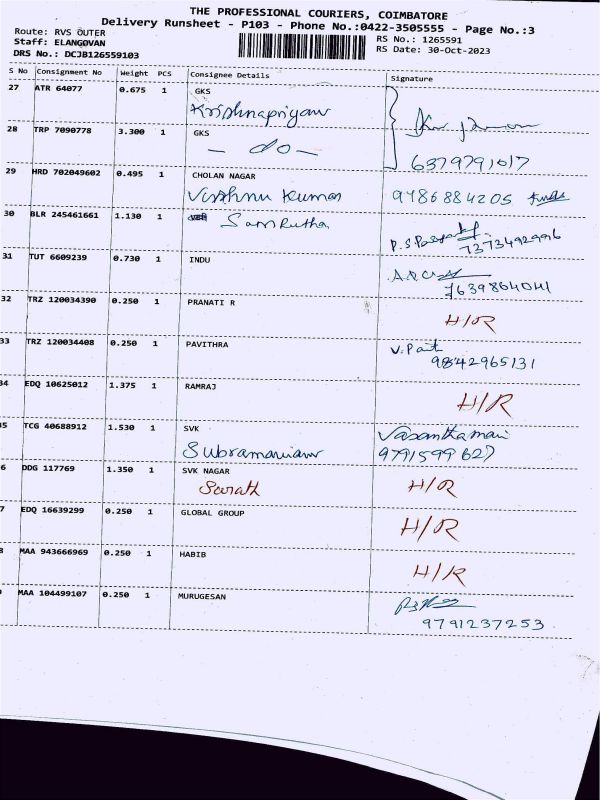 THE PROFESSIONAL COURIERS, COIMBATORE
Delivery Runsheet - P103 - Phone No.:0422-3505555 - Page No.:3
Route: RVS OUTER
RS No.: 1265591
Staff: ELANGOVAN
RS Date: 30-Oct-2023
DRS No.: DCJB126559103
S No Consignment No Weight PCS Consignee Details Signature
27 ATR 64077 0.675 1 GKS
Krishnapriyan
28 TRP 7090778 3.300 1 GKS
— do —
6379791017
29 HRD 702049602 0.495 1 CHOLAN NAGAR
Vishnu Kumar 9486884205
30 BLR 245461661 1.130 1
Samrutha
7373492996
31 TUT 6609239 0.730 1 INDU
7639864041
32 TRZ 120034390 0.250 1 PRANATI R
H/R
33 TRZ 120034408 0.250 1 PAVITHRA
9842965131
34 EDQ 10625012 1.375 1 RAMRAJ
H/R
35 TCG 40688912 1.530 1 SVK Vasanthamani
Subramaniam 9791599627
6 DDG 117769 1.350 1 SVK NAGAR
Sarath H/R
7 EDQ 16639299 0.250 1 GLOBAL GROUP
H/R
8 MAA 943666969 0.250 1 HABIB
H/R
MAA 104499107 0.250 1 MURUGESAN
9791237253